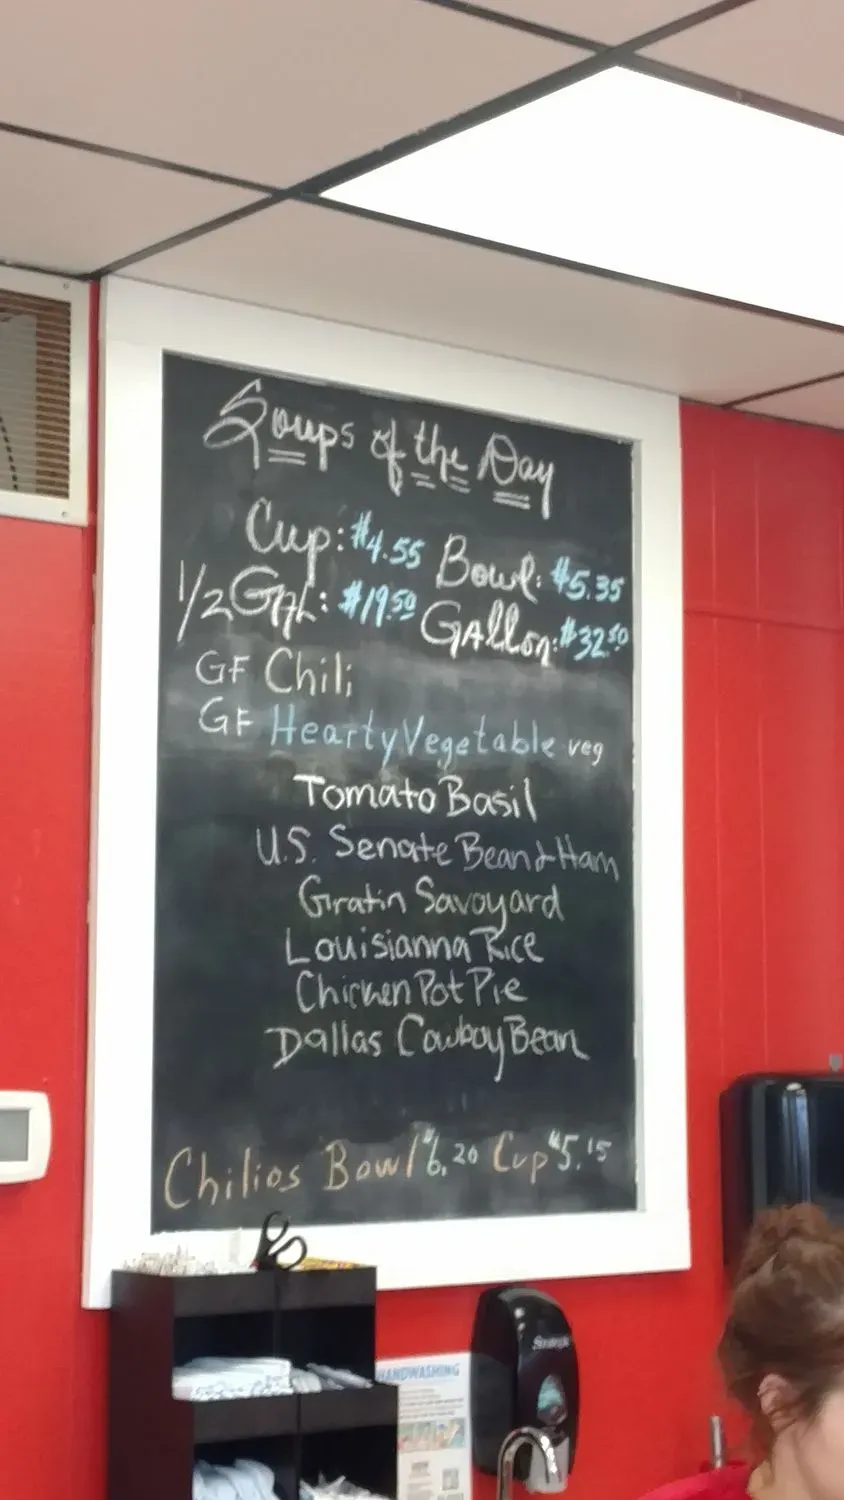 Soups of the Day
Cup: $4.55 Bowl: $5.35
1/2 GAL: $19.50 GAllon: $32.50
GF Chili
GF Hearty Vegetable veg
Tomato Basil
U.S. Senate Bean & Ham
Gratin Savoyard
Louisianna Rice
Chicken Pot Pie
Dallas Cowboy Bean
Chilios Bowl $6.20 Cup $5.15
HANDWASHING